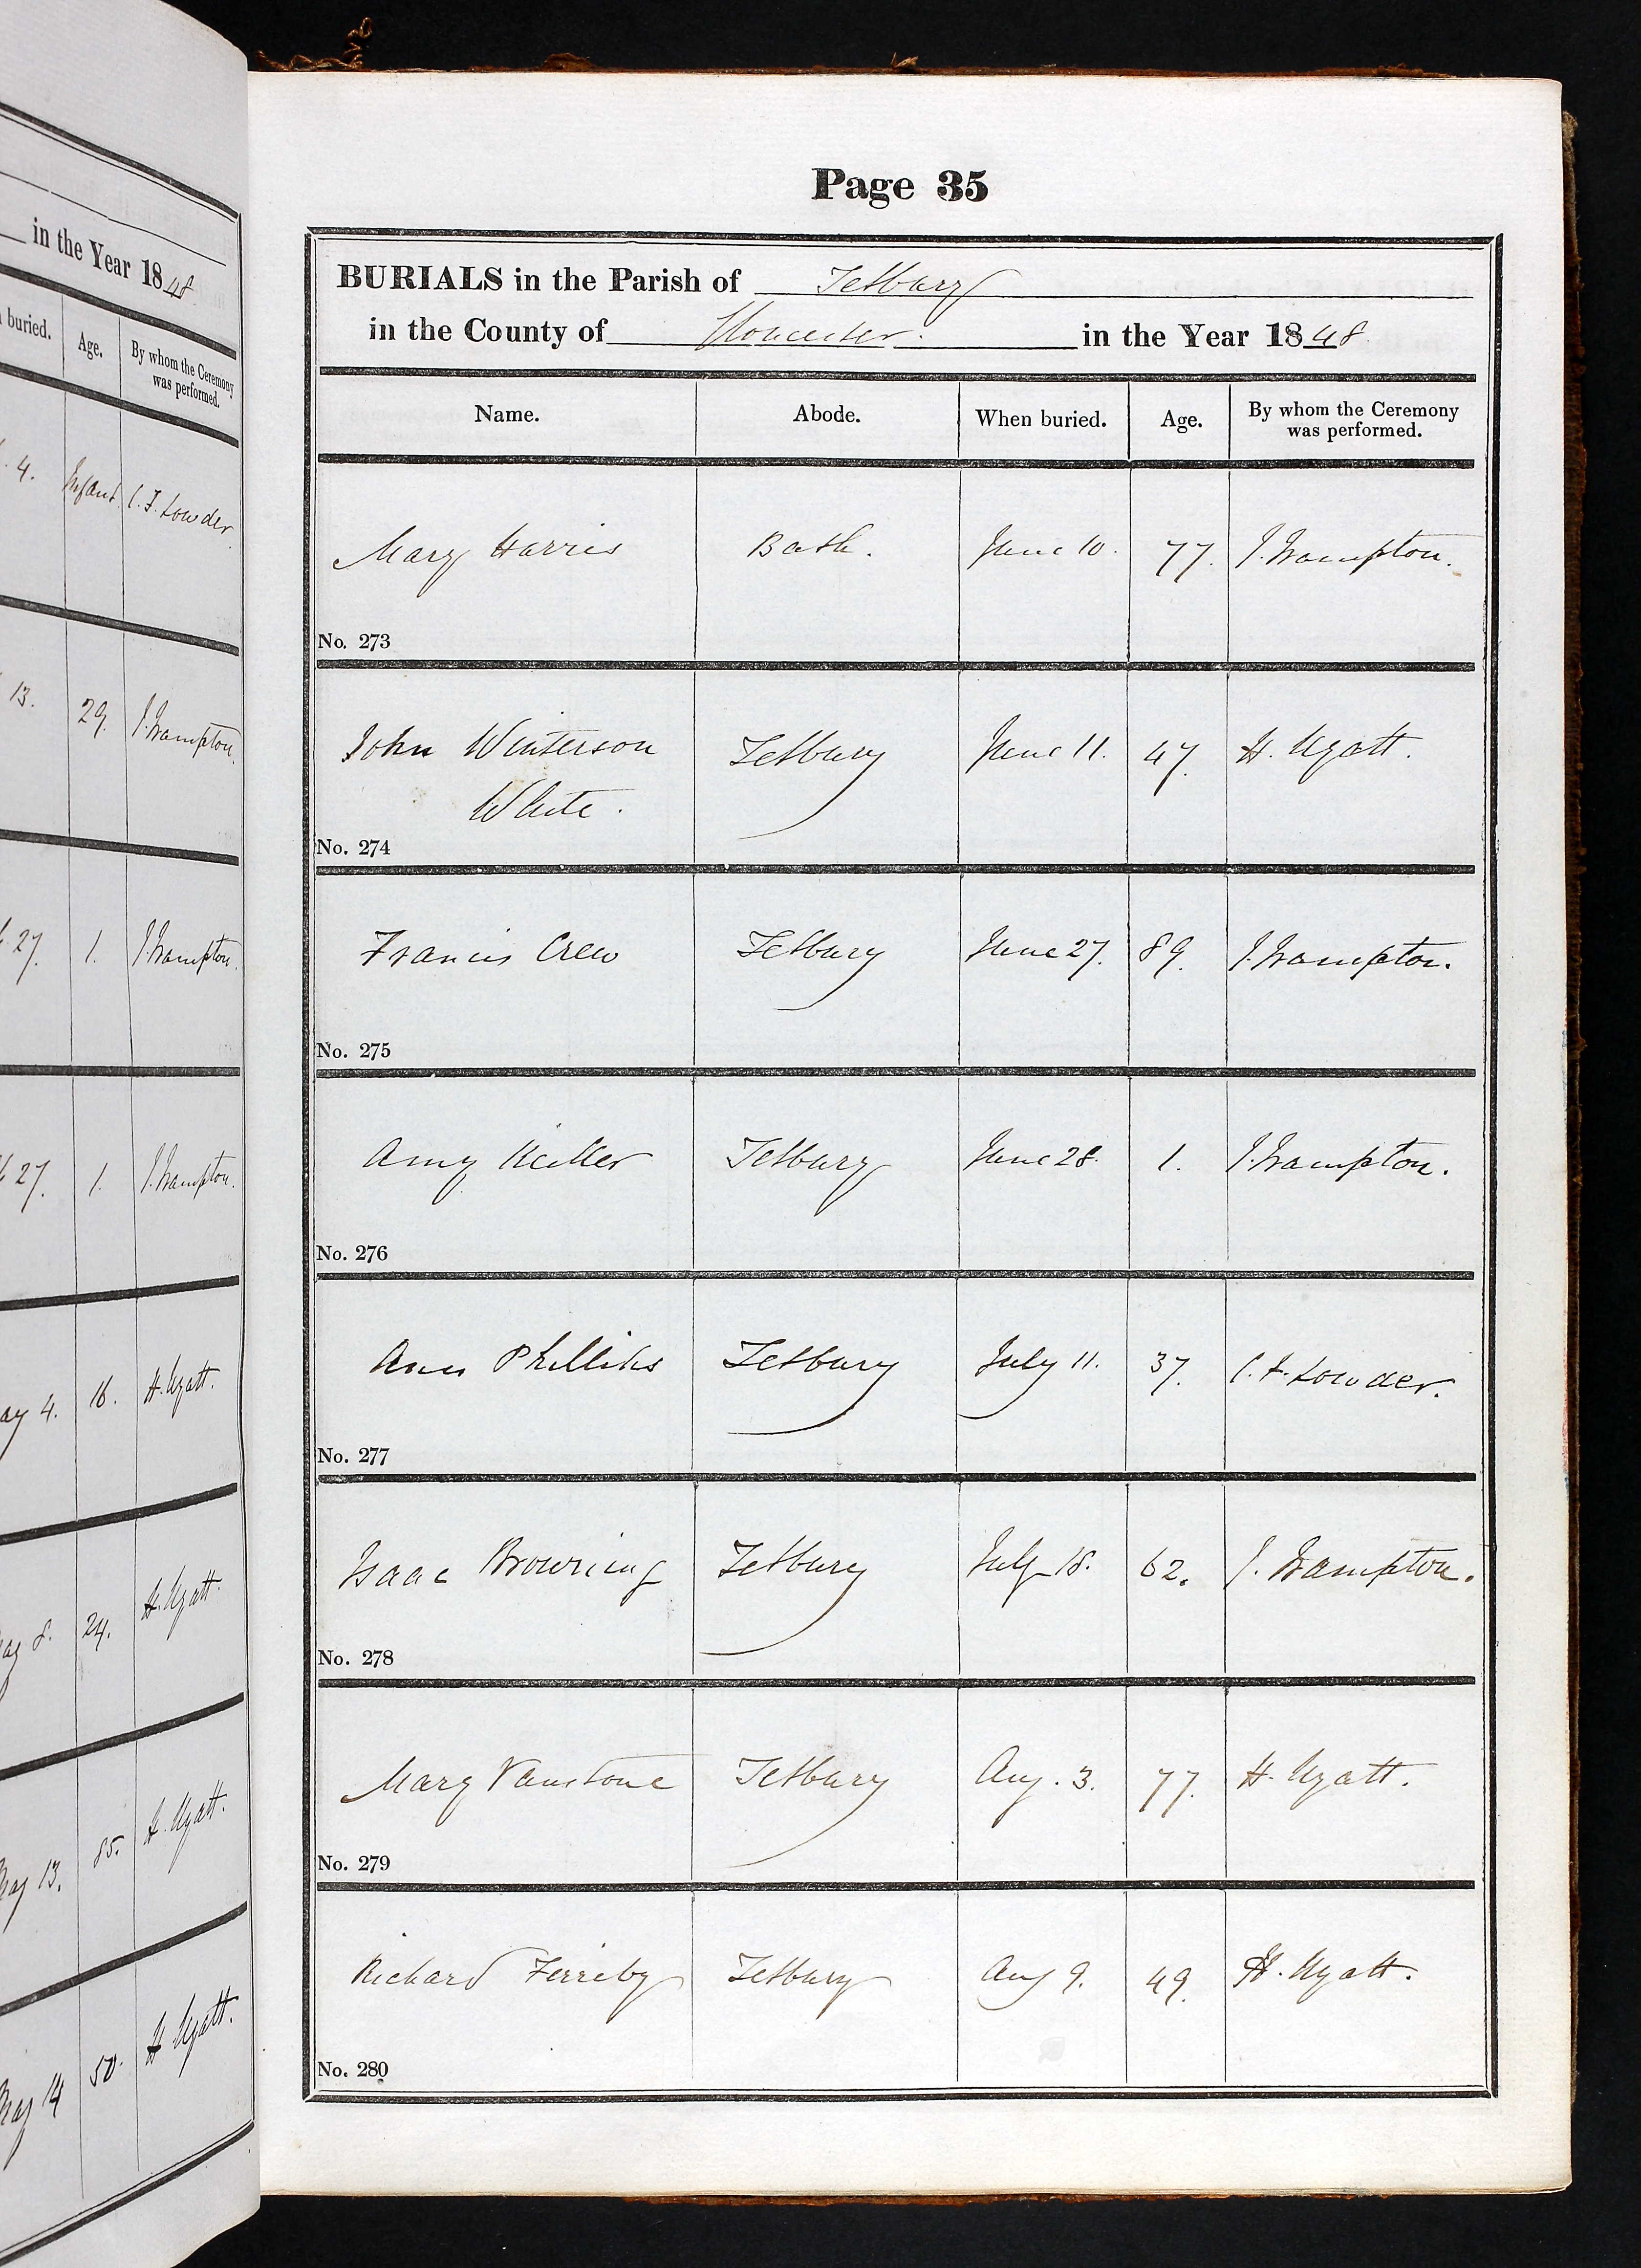 in the Year 1848
buried.
Age.
By whom the Ceremony
was performed.
4.
Infant
C. F. Lowder
13.
29.
J. Frampton.
27.
1.
J. Frampton.
27.
1.
J. Frampton.
ay 4.
16.
H. Wyatt.
8.
24.
H. Wyatt.
May 13.
85.
H. Wyatt.
May 14
50.
H. Wyatt.
Page 35
BURIALS in the Parish of Tetbury
in the County of Gloucester. in the Year 1848.
Name. Abode. When buried. Age. By whom the Ceremony
was performed.
Mary Harris Bath. June 10. 77. J. Frampton.
No. 273
John Winterson Tetbury June 11. 47. H. Wyatt.
White.
No. 274
Francis Crew Tetbury June 27. 89. J. Frampton.
No. 275
Amy Tetbury June 28. 1. J. Frampton.
No. 276
Ann Phillips Tetbury July 11. 37. C. F. Lowder.
No. 277
Isaac Browning Tetbury July 18. 62. J. Frampton.
No. 278
Mary Vanstone Tetbury Aug. 3. 77. H. Wyatt.
No. 279
Richard Ferreby Tetbury Aug 9. 49. H. Wyatt.
No. 280